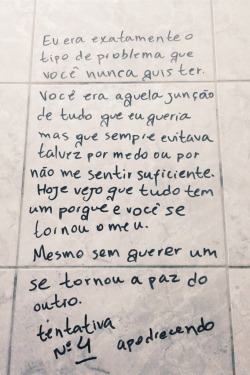 Eu era exatamente o
tipo de problema que
você nunca quis ter.
Você era aquela junção
de tudo que eu queria
mas que sempre evitava
talvez por medo ou por
não me sentir suficiente.
Hoje vejo que tudo tem
um porque e você se
tornou o meu.
Mesmo sem querer um
se tornou a paz do
outro.
tentativa
Nº 4 apodrecendo